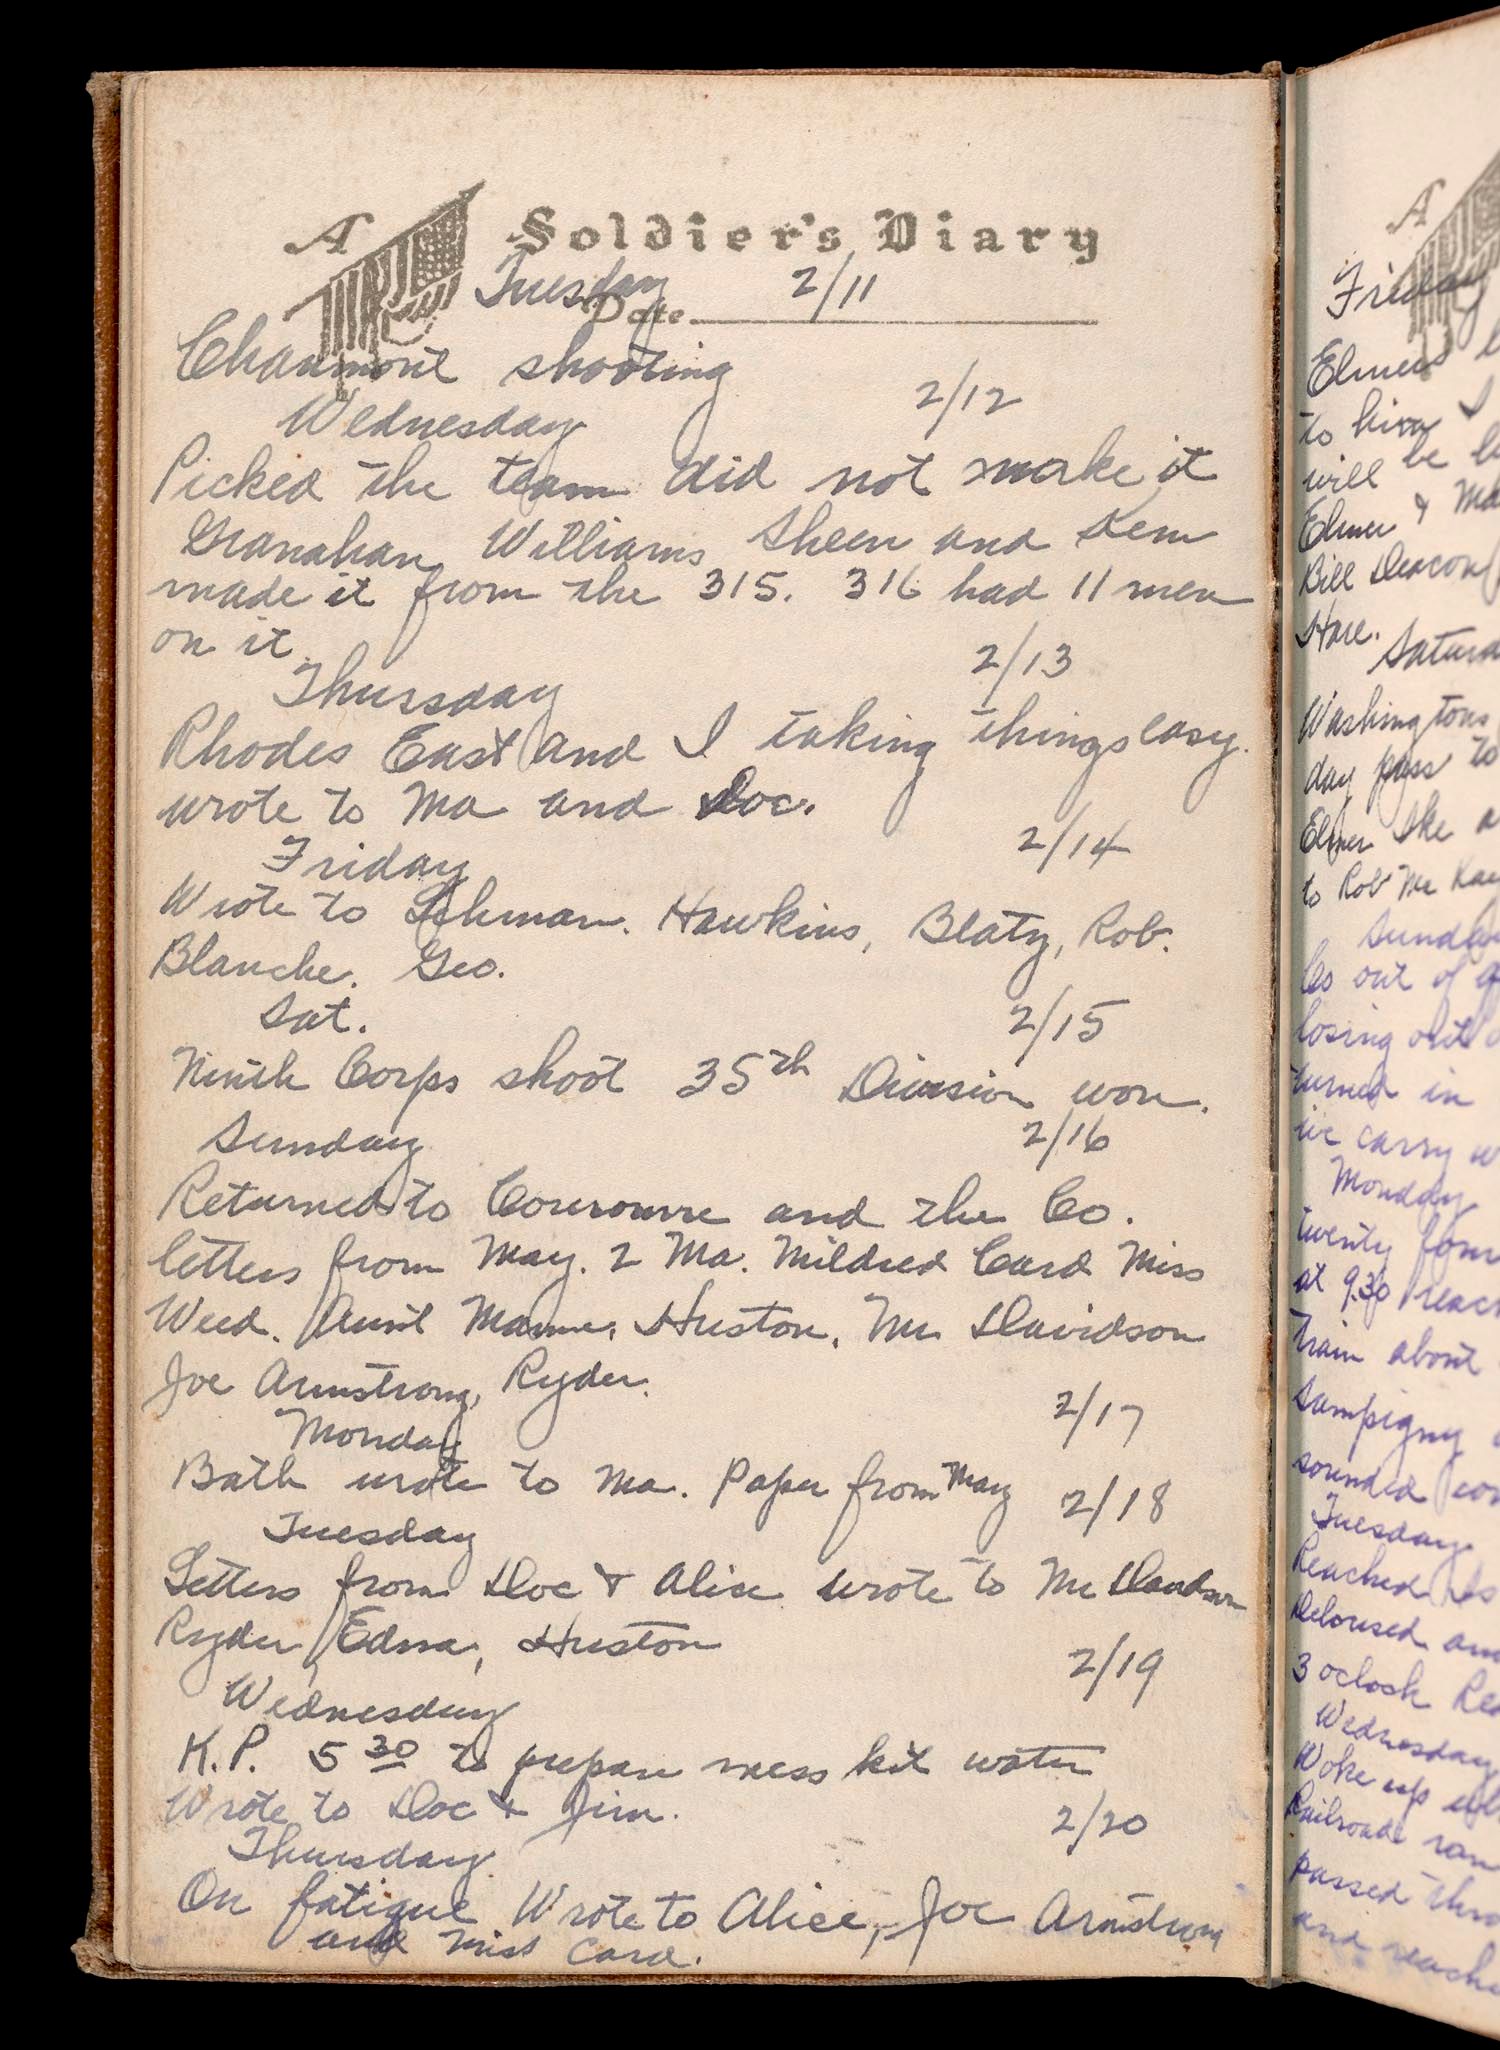 A Soldier's Diary
Tuesday 2/11
Date
Chaumont shooting
Wednesday 2/12
Picked the team did not make it
Granahan Williams Sheen and
made it from the 315. 316 had 11 men
on it.
Thursday 2/13
Rhodes East and I taking things easy.
wrote to Ma and Doc.
Friday 2/14
Wrote to Lehman. Hawkins, Beaty, Rob.
Blanche. Geo.
Sat. 2/15
Ninth Corps shoot 35th Division won.
Sunday 2/16
Returned to and the Co.
letters from May. 2 Ma. Mildred Card Miss
Weed. Aunt Mame, Huston, Mr Davidson
Joe Armstrong, Ryder.
Monday 2/17
Bath wrote to Ma. Paper from May
Tuesday 2/18
Letters from Doc & Alice wrote to Mr Davidson
Ryder, Edna, Huston
Wednesday 2/19
K.P. 5 30 to prepare mess kit water
Wrote to Doc & Jim.
Thursday 2/20
On fatigue Wrote to Alice, Joe Armstrong
and Miss Card.
A
Friday
Elmer
to him I
will be
Elmer &
Bill Deacon
Hare.
Washingtons
day pass to
Elmer Ike
to Rob Mc Kay
Co out of
losing out
turned in
we carry
Monday
twenty four
at 9.30
train about
Sampigny
sounded
Tuesday
Reached
Deloused and
3 oclock
Wednesday
Woke up
Railroad ran
passed
and